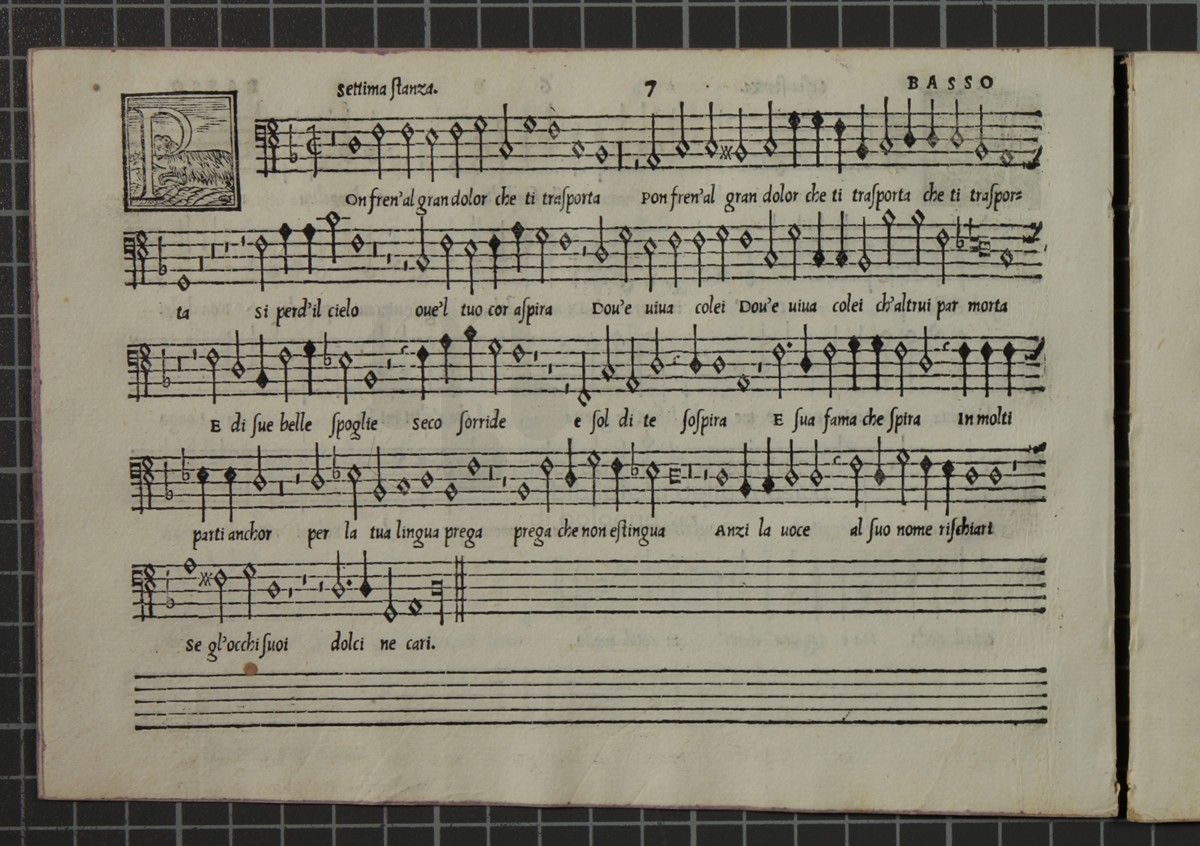 Settima ſtanza. 7 BASSO
POn fren'al gran dolor che ti traſporta Pon fren'al gran dolor che ti traſporta che ti traſpor=
ta si perd'il cielo oue'l tuo cor aſpira Dou'e uiua colei Dou'e uiua colei ch'altrui par morta
E di ſue belle ſpoglie Seco ſorride e ſol di te ſoſpira E ſua fama che ſpira In molti
parti anchor per la tua lingua prega prega che non eſtingua Anzi la uoce al ſuo nome riſchiari
Se gl'occhi ſuoi dolci ne cari.